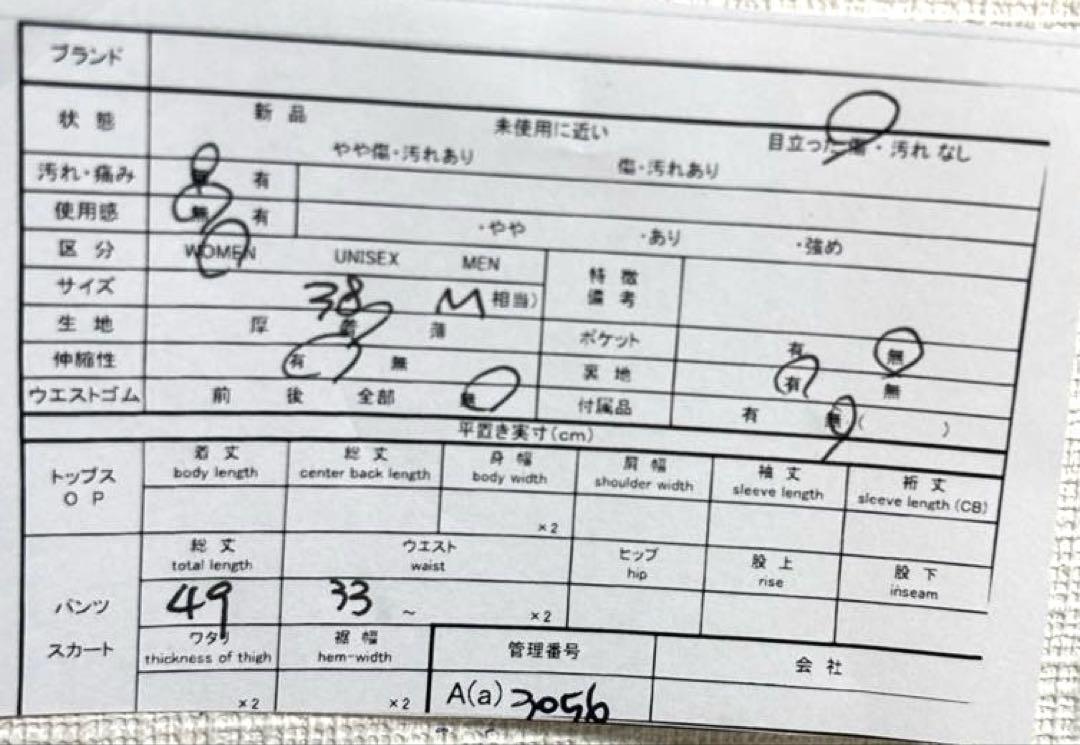 ブランド
状態 新品 未使用に近い 目立った傷・汚れ なし
やや傷・汚れあり 傷・汚れあり
汚れ・痛み 無 有
使用感 無 有 ・やや ・あり ・強め
区分 WOMEN UNISEX MEN 特徴備考
サイズ 38 M 相当)
生地 厚 普 薄 ポケット 有 無
伸縮性 有 無 裏地 有 無
ウエストゴム 前 後 全部 無 付属品 有 無( )
平置き実寸(cm)
トップス OP
着丈 body length 総丈 center back length 身幅 body width 肩幅 shoulder width 袖丈 sleeve length 裄丈 sleeve length (CB)
×2
パンツ スカート
総丈 total length ウエスト waist ヒップ hip 股上 rise 股下 inseam
49 33 ~ ×2
ワタリ thickness of thigh 裾幅 hem-width 管理番号 会社
×2 ×2 A(a) 3056